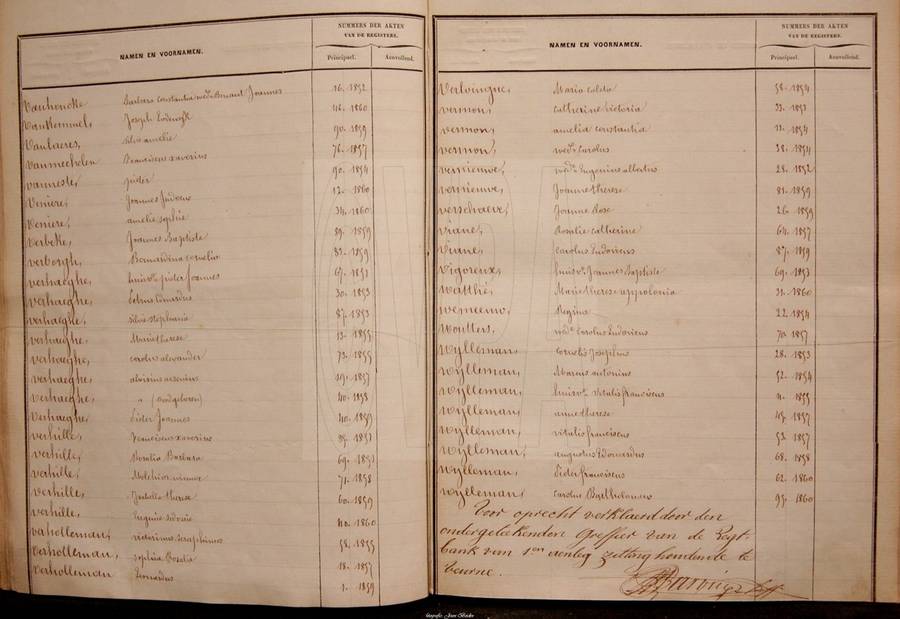 NAMEN EN VOORNAMEN.
NUMMERS DER AKTEN
VAN DE REGISTERS.
Principael. Aenvullend.
Vanhoucke Barbara constantia wed.e Joannes 16. 1852
Vankemmel, Joseph Lodewyk 46. 1860
Vanlaeres, Silvi amelie 90. 1859
Vanmechelen Franciscus xaverius 76. 1857
vanneste, pieter 90. 1854
Veniere, Joannes Judocus 12. 1860
Veniere, amelie sophie 34. 1860
Verbeke, Joannes Baptiste 89. 1859
verborgh, Bernardina cornelia 82. 1859
verhaeghe, huisv.e pieter Joannes 67. 1851
verhaeghe, 30. 1853
verhaeghe, silvie stephanie 87. 1853
verhaeghe, Marie therese 13. 1855
verhaeghe, carolus alexander 73. 1855
verhaeghe, aloisius 19. 1857
verhaeghe, " (doodgeboren) 40. 1858
Verhaeghe, Pieter Joannes 40. 1859
verhille, Franciscus xaverius 1851
verhille, Rosalie Barbara 69. 1852
verhille, Melchior 71. 1858
verhille, Isabelle therese 60. 1859
verhille, Eugenie 1860
vaholleman, victorinus Seraphinus 58. 1855
Vaholleman, sophia Rosalia 18. 1857
vaholleman Leonardus 1. 1859
NAMEN EN VOORNAMEN.
NUMMERS DER AKTEN
VAN DE REGISTERS.
Principael. Aenvullend.
Verlouigne, Maria coleta 58. 1854
vermon, catherine victoria 33. 1851
vermon, amelia constantia 11. 1854
vermon, wed.e carolus 38. 1854
vernieuwe, wed.e Eugenius albertus 28. 1852
vernieuwe, Joanne therese 81. 1859
verschaeve, Joanne Rose 26. 1859
viane, Rosalie catherine 64. 1857
Viane, carolus Ludovicus 87. 1859
Vigoreux, huisv.e Joannes Baptiste 69. 1853
watthé, Marie therese appolonia 31. 1860
wemeeuw, Regina 22. 1854
Woutters, wed.e carolus Ludovicus 70. 1857
wylleman, cornelis Josephus 28. 1853
wylleman, Marcus antonius 52. 1854
wylleman, huisv.e vitalis franciscus 4. 1855
wylleman, anne therese 45. 1857
wylleman, vitalis franciscus 53. 1857
wylleman, augustus Edouardus 68. 1858
wylleman, Pieter franciscus 62. 1860
wylleman, carolus Bartholomeus 95. 1860
Voor oprecht verklaerd door den
ondergeteekenden Greffier van de Regt-
bank van 1.en aenleg zitting houdende te
veurne.